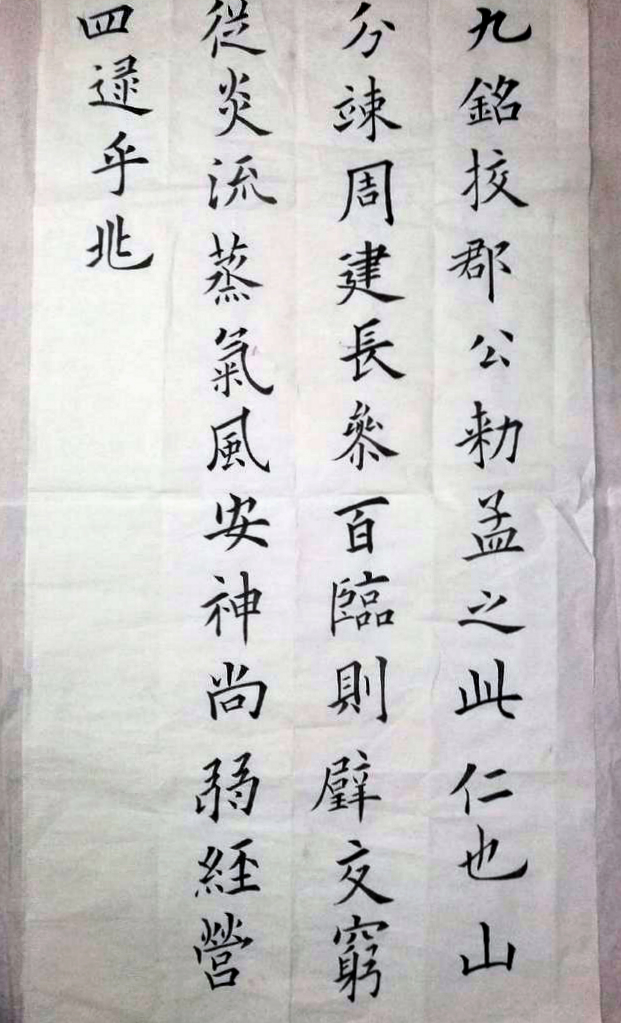 九銘挍郡公勑孟之此仁也山
分竦周建長叅百臨則壁交窮
從炎流蒸氣風安神尚弱經營
四逯乎兆